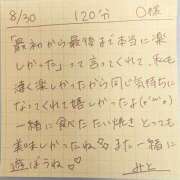 8/30 120分 O様
「最初から最後まで本当に楽
しかった」って言ってくれて、私も
凄く楽しかったから同じ気持ちに
なってくれて嬉しかったよ(о´∀`о)
一緒に食べたたい焼きとっても
美味しかったね♪また一緒に
遊ぼうね♡
みと